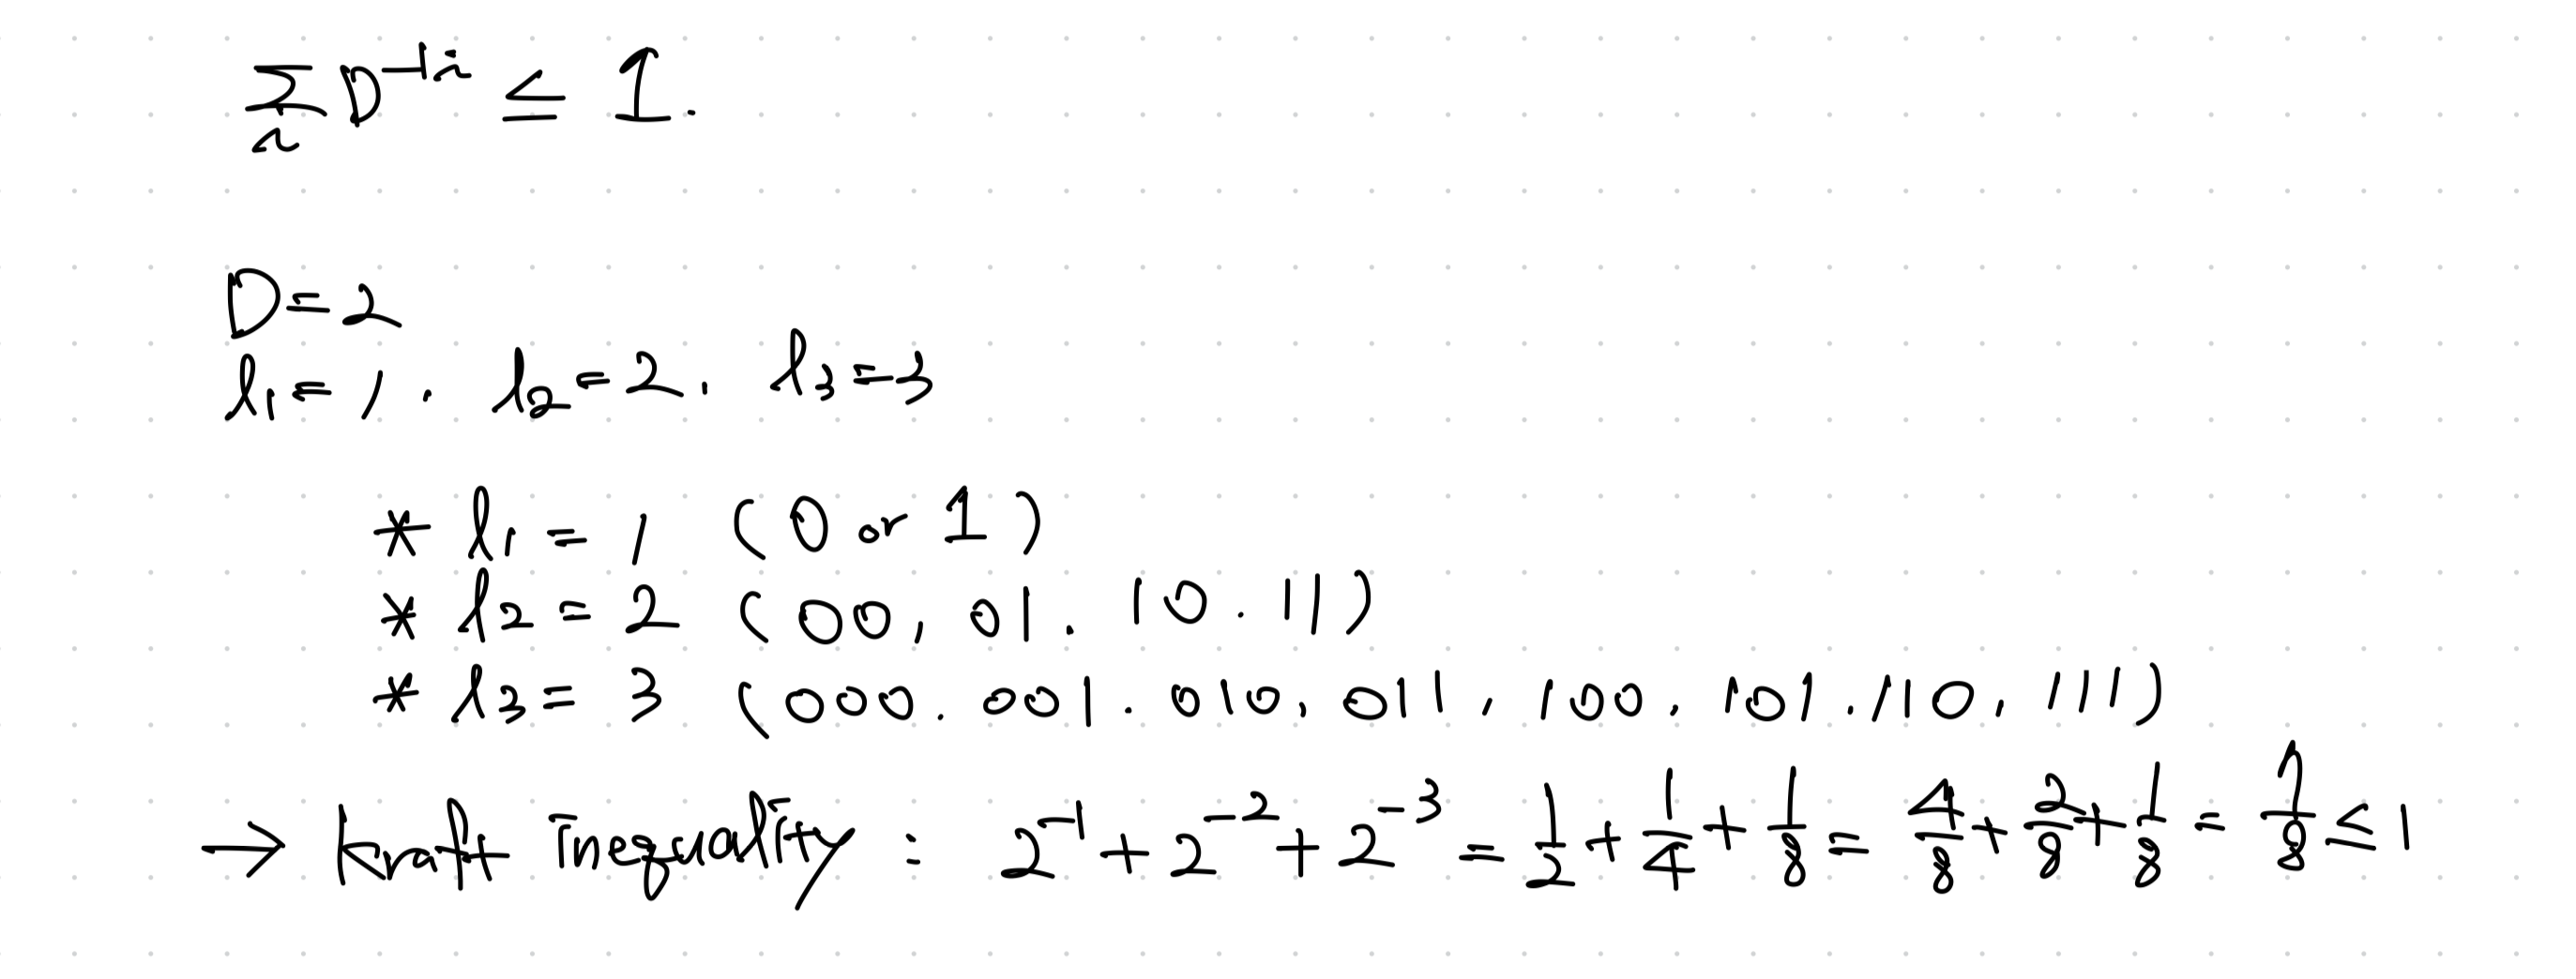 ∑_i D^{-l_i} ≤ 1.
D=2
l₁=1. l₂=2. l₃=3
* l₁ = 1 (0 or 1)
* l₂ = 2 (00, 01. 10. 11)
* l₃ = 3 (000. 001. 010, 011, 100. 101. 110, 111)
→ Kraft Inequality : 2⁻¹ + 2⁻² + 2⁻³ = 1/2 + 1/4 + 1/8 = 4/8 + 2/8 + 1/8 = 7/8 ≤ 1